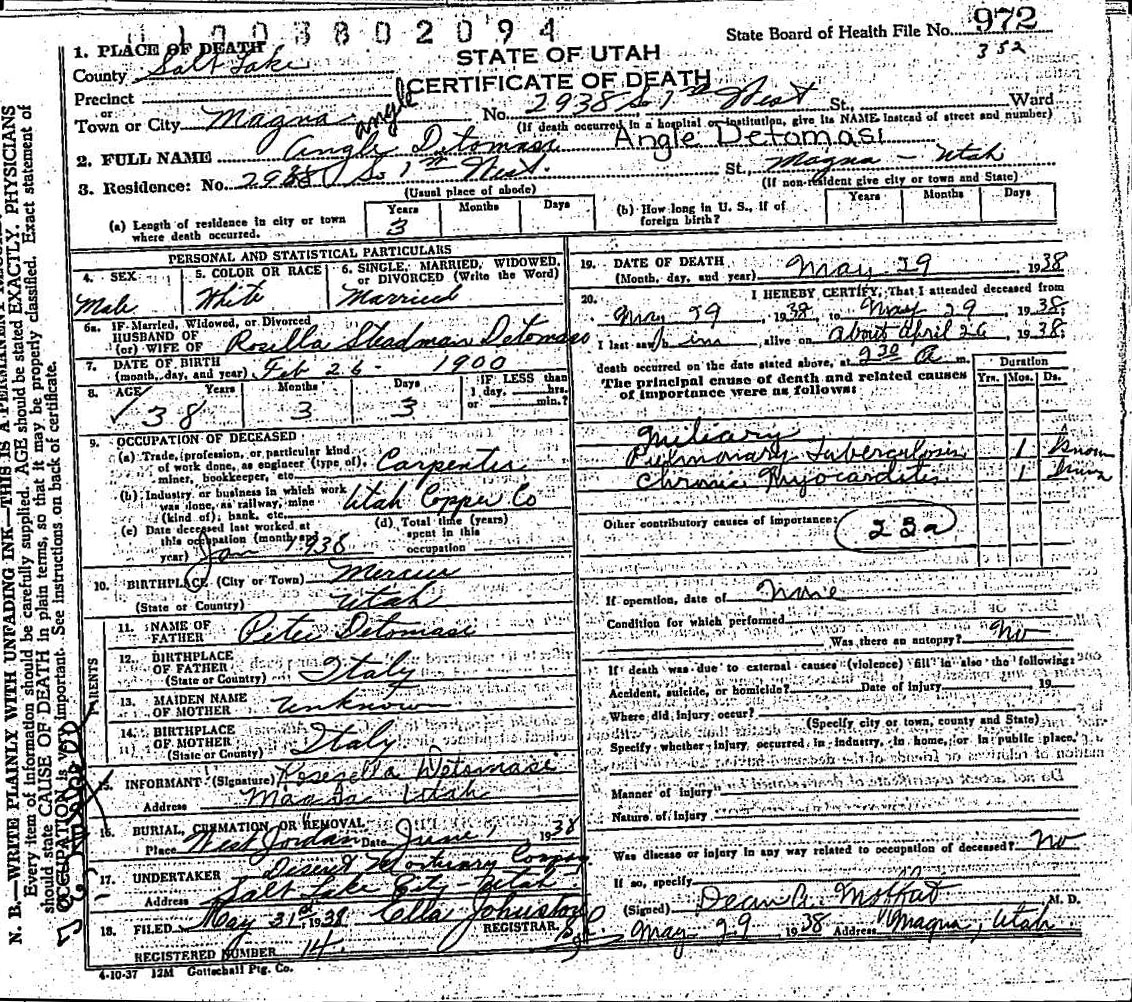 0 1 0 0 3 8 0 2 0 9 4
State Board of Health File No. 972
352
1. PLACE OF DEATH
STATE OF UTAH
County Salt Lake
CERTIFICATE OF DEATH
Precinct
or
Town or City Magna No. 2938 So 1st West St. Ward
(If death occurred in a hospital or institution, give its NAME instead of street and number)
angle
2. FULL NAME Angle Detomasi Angle Detomasi
3. Residence: No. 2988 So 1st West. St., Magna - Utah
(Usual place of abode) (If non-resident give city or town and State)
(a) Length of residence in city or town where death occurred. Years 3 Months Days
(b) How long in U. S., if of foreign birth? Years Months Days
PERSONAL AND STATISTICAL PARTICULARS
4. SEX Male
5. COLOR OR RACE White
6. SINGLE, MARRIED, WIDOWED, or DIVORCED (Write the Word) Married
6a. IF Married, Widowed, or Divorced
HUSBAND OF
(or) WIFE OF Rosella Steadman Detomaso
7. DATE OF BIRTH
(month, day, and year) Feb 26 - 1900
8. AGE Years 38 Months 3 Days 3 IF LESS than 1 day, hrs. or min.?
9. OCCUPATION OF DECEASED
(a) Trade, profession, or particular kind
of work done, as engineer (type of),
miner, bookkeeper, etc. Carpenter
(b) Industry or business in which work
was done, as railway, mine
(kind of), bank, etc. Utah Copper Co
(c) Date deceased last worked at
this occupation (month and
year) Jan 1938
(d) Total time (years)
spent in this
occupation
10. BIRTHPLACE (City or Town) Mercur
(State or Country) Utah
PARENTS
11. NAME OF
FATHER Peter Detomasi
12. BIRTHPLACE
OF FATHER
(State or Country) Italy
13. MAIDEN NAME
OF MOTHER unknown
14. BIRTHPLACE
OF MOTHER
(State or County) Italy
15. INFORMANT (Signature) Rosella Detomasi
Address Magna Utah
16. BURIAL, CREMATION, OR REMOVAL
Place West Jordan Date June 1 1938
17. UNDERTAKER Deseret Mortuary Company
Address Salt Lake City - Utah
18. FILED May 31st, 1938 Ella Johnston
REGISTRAR.
REGISTERED NUMBER 14.
4-10-37 12M Gottschall Ptg. Co.
19. DATE OF DEATH
(Month, day, and year) May 29 1938
20. I HEREBY CERTIFY, That I attended deceased from
May 29, 1938, to May 29, 1938;
I last saw him alive on about April 26, 1938;
death occurred on the date stated above, at 2 30 A m.
The principal cause of death and related causes
of importance were as follows:
Duration
Yrs. Mos. Ds.
Miliary
Pulmonary Tuberculosis 1
Chronic Myocarditis 1
Other contributory causes of importance:
23a
If operation, date of None
Condition for which performed
Was there an autopsy? No
If death was due to external causes (violence) fill in also the following:
Accident, suicide, or homicide? Date of injury 19
Where did injury occur?
(Specify city or town, county and State)
Specify whether injury occurred in industry, in home, or in public place.
Manner of injury
Nature of injury
Was disease or injury in any way related to occupation of deceased? No
If so, specify
(Signed) Dean A. Moffat M. D.
May 29 1938 Address Magna, Utah
N. B.—WRITE PLAINLY WITH UNFADING INK—THIS IS A PERMANENT RECORD.
Every item of information should be carefully supplied. AGE should be stated EXACTLY. PHYSICIANS
should state CAUSE OF DEATH in plain terms, so that it may be properly classified. Exact statement of
OCCUPATION is very important. See instructions on back of certificate.